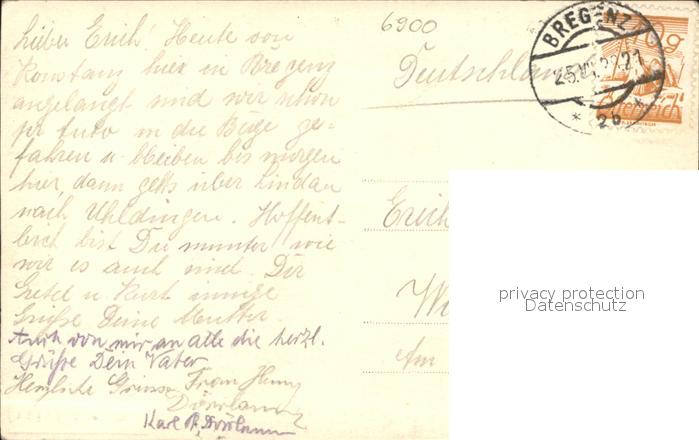 6900
BREGENZ
Lieber Erich! Heute von
Konstanz hier in Bregenz
angelangt sind wir schon
per Auto in die Berge ge=
fahren u. bleiben bis morgen
hier, dann gehts über Lindau
nach Uhldingen. Hoffent=
lich bist Du munter wie
wir es auch sind. Dir
Gretel u. Kurt innige
Grüße Deine Mutter.
Auch von mir an alle die herzl.
Grüße Dein Vater
Herzliche Grüsse Frau
Karl
Deutschland
Erich
Am
privacy protection
Datenschutz